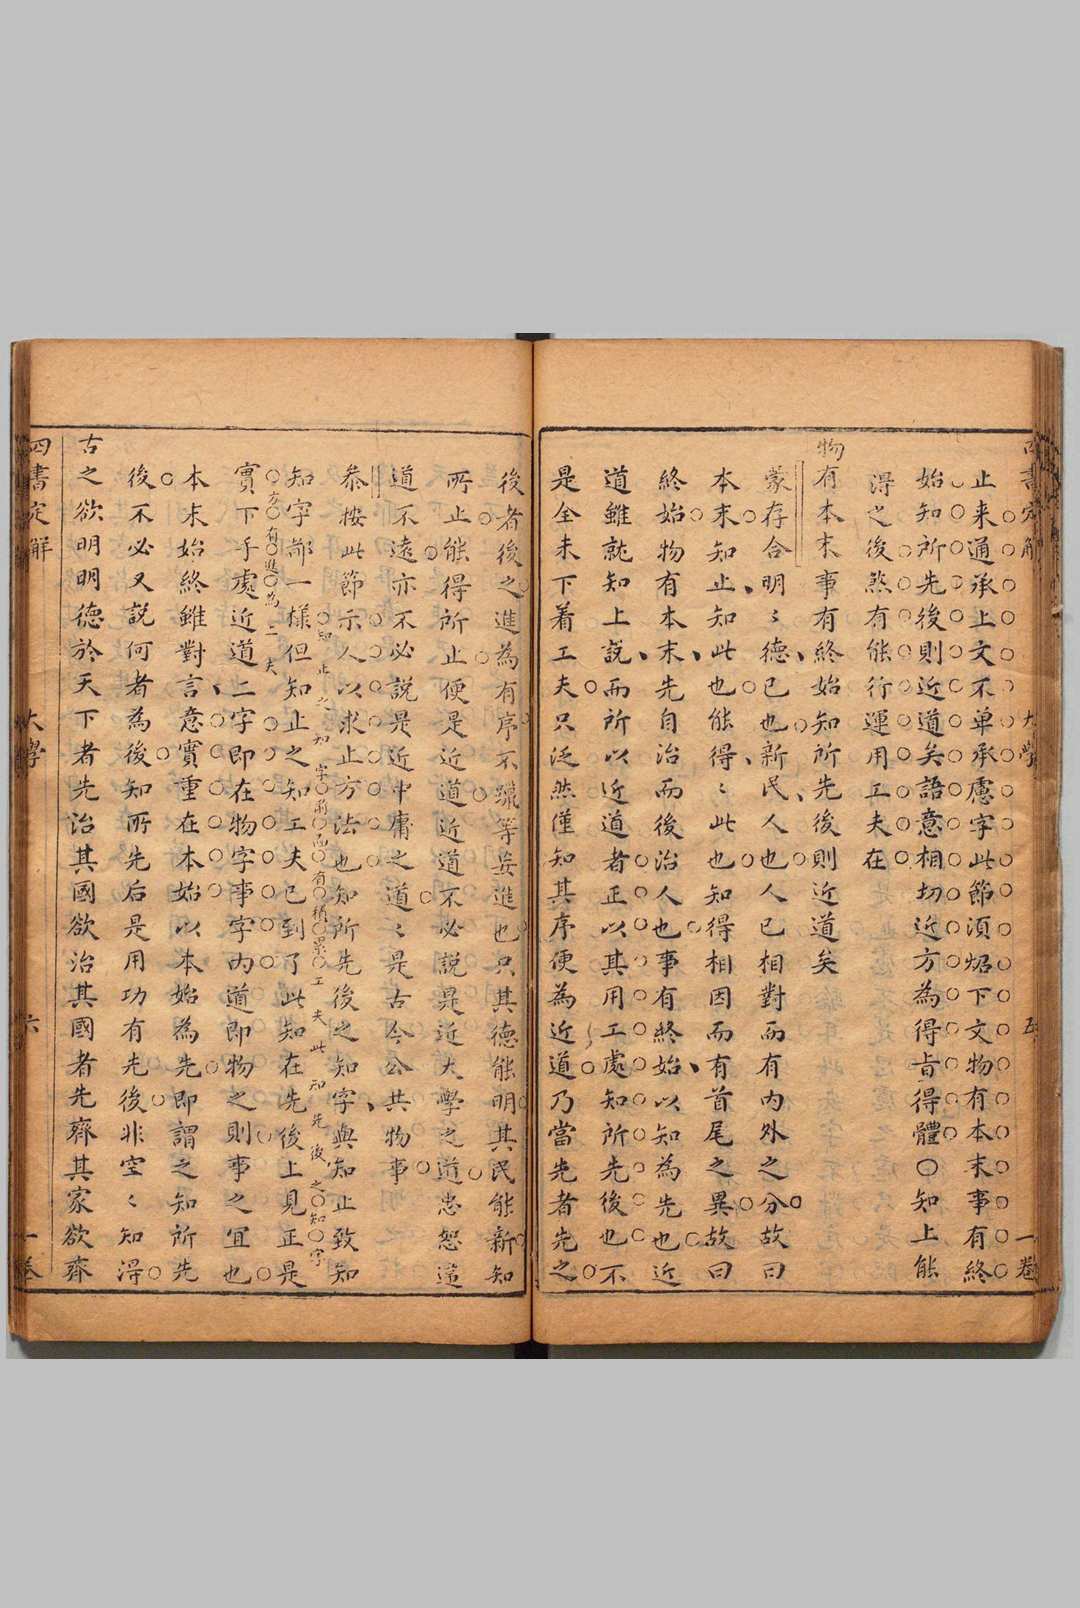 四書定解 大學 五 一卷
止来通承上文不单承慮字此節湏炤下文物有本末事有終
始知所先後則近道矣語意相切近方為得旨得體○知上能
淂之後然有能行運用工夫在
物有本末事有終始知所先後則近道矣
蒙存合明〻德已也新民人也人已相對而有内外之分故曰
本末知止知此也能得〻此也知得相因而有首尾之異故曰
終始物有本末先自治而後治人也事有終始以知為先也近
道雖就知上說而所以近道者正以其用工處知所先後也不
是全未下着工夫只泛然僅知其序便為近道乃當先者先之
後者後之進為有序不躐等妄進也只其德能明其民能新知
所止能得所止便是近道近道不必說是近大學之道忠恕違
道不遠亦不必說是近中庸之道〻是古今公共物事
叅按此節示人以求止方法也知所先後之知字與知止致知
知止之知字前面有積累工夫此知先後之知字
知字都一樣但知止之知工夫已到了此知在先後上見正是
方有進為工夫
實下手處近道二字即在物字事字内道即物之則事之宜也
本末始終雖對言意實重在本始以本始為先即謂之知所先
後不必又説何者為後知所先后是用功有先後非空〻知淂
古之欲明明德於天下者先治其國欲治其國者先齊其家欲齊
四書定解 大學 六 一卷